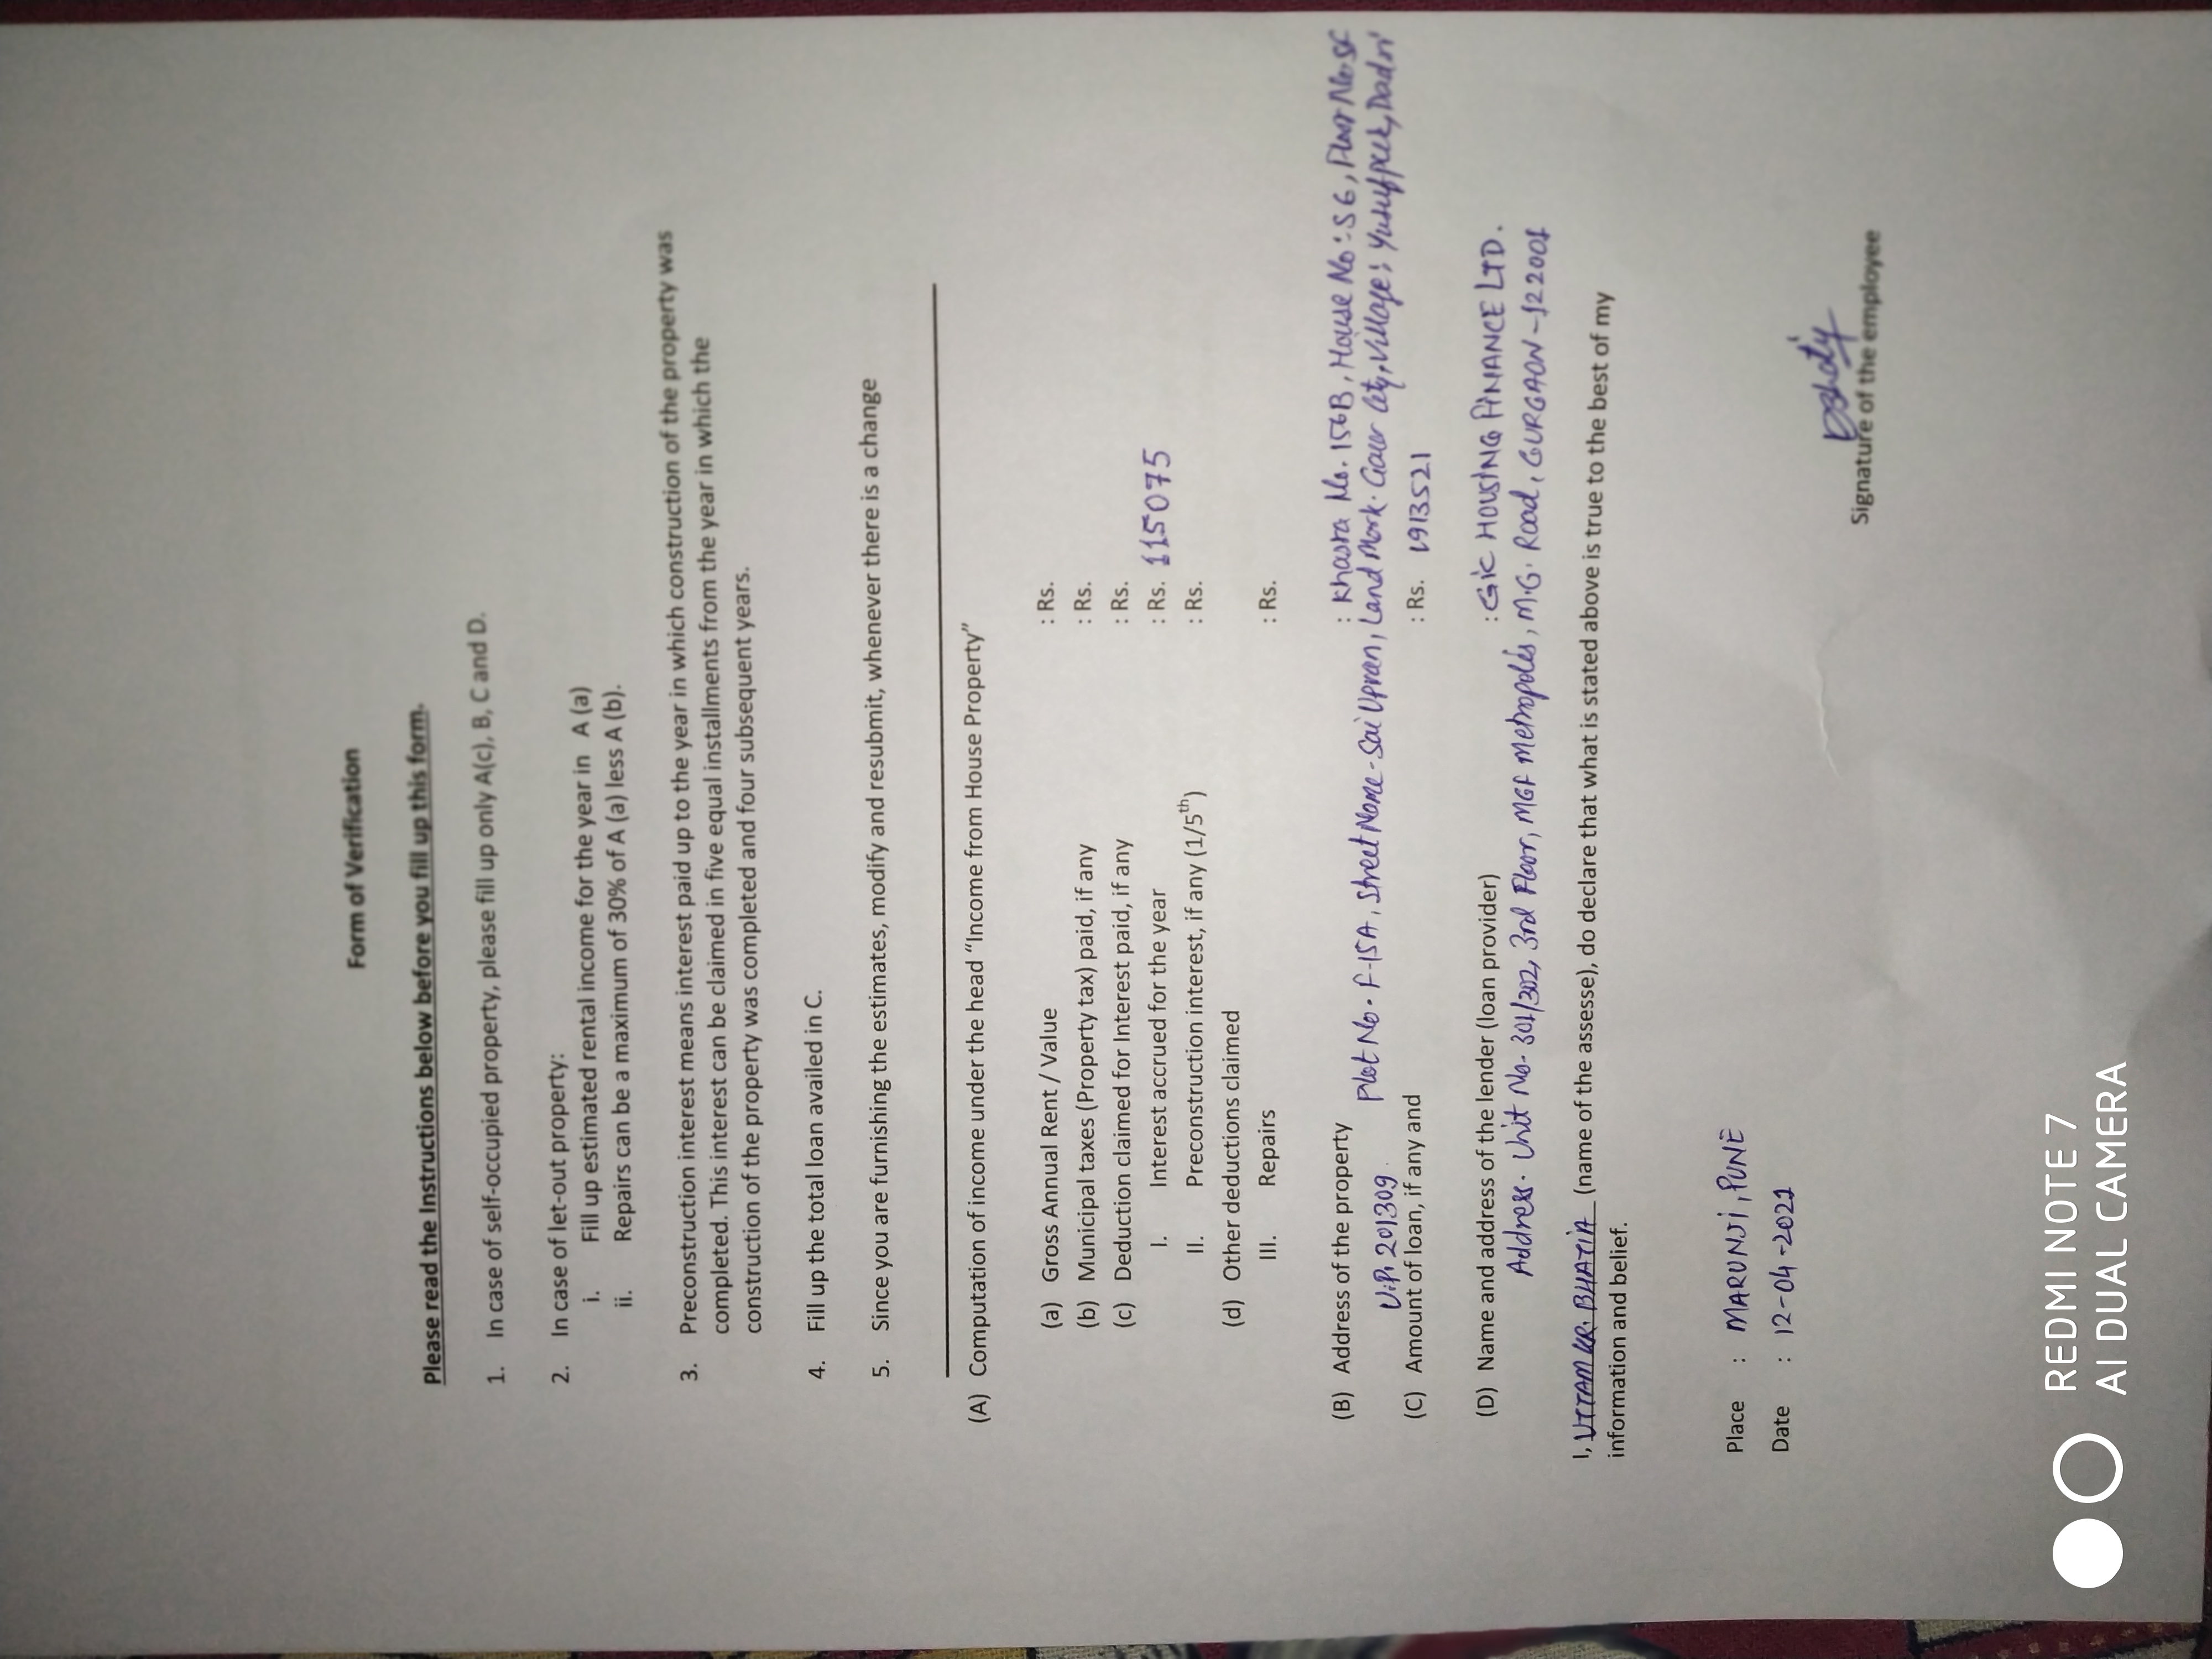 Form of Verification
Please read the Instructions below before you fill up this form.
1. In case of self-occupied property, please fill up only A(c), B, C and D.
2. In case of let-out property:
i. Fill up estimated rental income for the year in A (a)
ii. Repairs can be a maximum of 30% of A (a) less A (b).
3. Preconstruction interest means interest paid up to the year in which construction of the property was
completed. This interest can be claimed in five equal installments from the year in which the
construction of the property was completed and four subsequent years.
4. Fill up the total loan availed in C.
5. Since you are furnishing the estimates, modify and resubmit, whenever there is a change
(A) Computation of income under the head “Income from House Property”
(a) Gross Annual Rent / Value : Rs.
(b) Municipal taxes (Property tax) paid, if any : Rs.
(c) Deduction claimed for Interest paid, if any : Rs.
I. Interest accrued for the year : Rs. 115075
II. Preconstruction interest, if any (1/5th) : Rs.
(d) Other deductions claimed
III. Repairs : Rs.
(B) Address of the property : Khasra No. 156B, House No: S6, Floor No. SF
Plot No. F-15A, Street Name - Sai Upvan, Land Mark. Gaur City, Village: Yusufpur, Dadri
U.P. 201309
(C) Amount of loan, if any and : Rs. 1913521
(D) Name and address of the lender (loan provider) : GIC HOUSING FINANCE LTD.
Address. Unit No. 301/302, 3rd Floor, MGF Metropolis, M.G. Road, GURGAON - 122001
I, UTTAM KR. BHATIA (name of the assesse), do declare that what is stated above is true to the best of my
information and belief.
Place : MARUNJI, PUNE
Date : 12-04-2021
Signature of the employee
REDMI NOTE 7
AI DUAL CAMERA